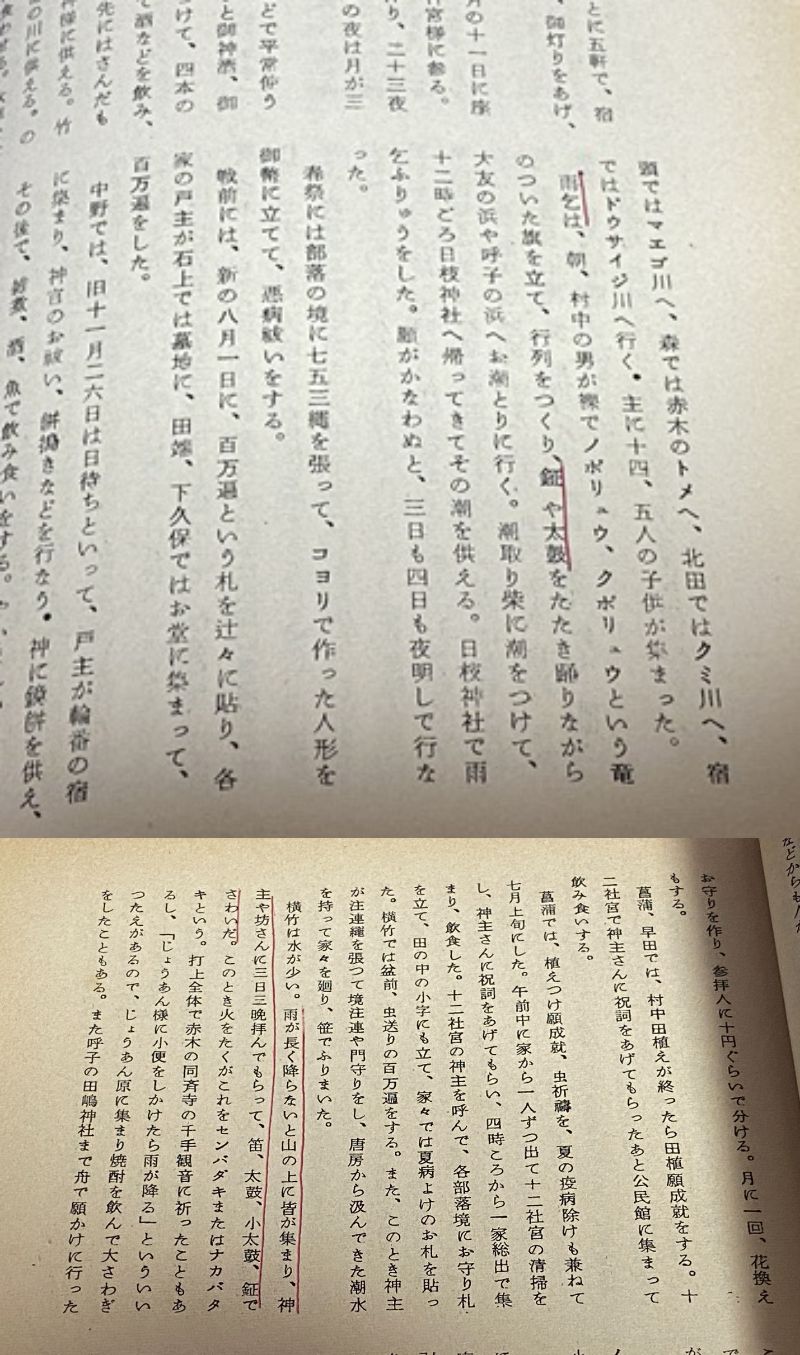 とに五軒で、宿
、御灯りをあげ、
月の十一日に座
宮様に参る。
り、二十三夜
の夜は月が三
どで平常使う
と御神酒、御
けて、四本の
て酒などを飲み、
先にはさんだも
神様に供える。竹
の川に供える。の
頭ではマエゴ川へ、森では赤木のトメへ、北田ではクミ川へ、宿
ではドウサイジ川へ行く。主に十四、五人の子供が集まった。
雨乞は、朝、村中の男が裸でノボリュウ、クボリュウという竜
のついた旗を立て、行列をつくり、鉦や太鼓をたたき踊りながら
大友の浜や呼子の浜へお潮とりに行く。潮取り柴に潮をつけて、
十二時どろ日枝神社へ帰ってきてその潮を供える。日枝神社で雨
乞ふりゅうをした。願がかなわぬと、三日も四日も夜明しで行な
った。
春祭には部落の境に七五三縄を張って、コヨリで作った人形を
御幣に立てて、悪病祓いをする。
戦前には、新の八月一日に、百万遍という札を辻々に貼り、各
家の戸主が石上では墓地に、田端、下久保ではお堂に集まって、
百万遍をした。
中野では、旧十一月二六日は日待ちといって、戸主が輪番の宿
に集まり、神官のお祓い、餅搗きなどを行なう。神に鏡餅を供え、
その後で、雑煮、酒、魚で飲み食いをする。
などからも
お守りを作り、参拝人に十円ぐらいで分ける。月に一回、花換え
もする。
菖蒲、早田では、村中田植えが終ったら田植願成就をする。十
二社宮で神主さんに祝詞をあげてもらったあと公民館に集まって
飲み食いする。
菖蒲では、植えつけ願成就、虫祈禱を、夏の疫病除けも兼ねて
七月上旬にした。午前中に家から一人ずつ出て十二社宮の清掃を
し、神主さんに祝詞をあげてもらい、四時ころから一家総出で集
まり、飲食した。十二社宮の神主を呼んで、各部落境にお守り札
を立て、田の中の小字にも立て、家々では夏病よけのお札を貼っ
た。横竹では盆前、虫送りの百万遍をする。また、このとき神主
が注連縄を張つて境注連や門守りをし、唐房から汲んできた潮水
を持って家々を廻り、笹でふりまいた。
横竹は水が少い。雨が長く降らないと山の上に皆が集まり、神
主や坊さんに三日三晩拝んでもらって、笛、太鼓、小太鼓、鉦で
さわいだ。このとき火をたくがこれをセンバダキまたはナカバタ
キという。打上全体で赤木の同斉寺の千手観音に祈ったこともあ
るし、「じょうあん様に小便をしかけたら雨が降る」といういい
つたえがあるので、じょうあん原に集まり焼酎を飲んで大さわぎ
をしたこともある。また呼子の田嶋神社まで舟で願かけに行った